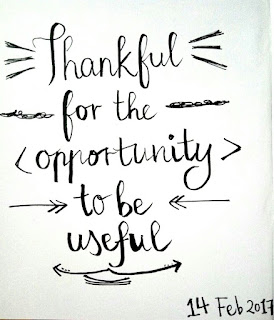 Thankful
for the
<opportunity>
to be
useful
14 Feb 2017